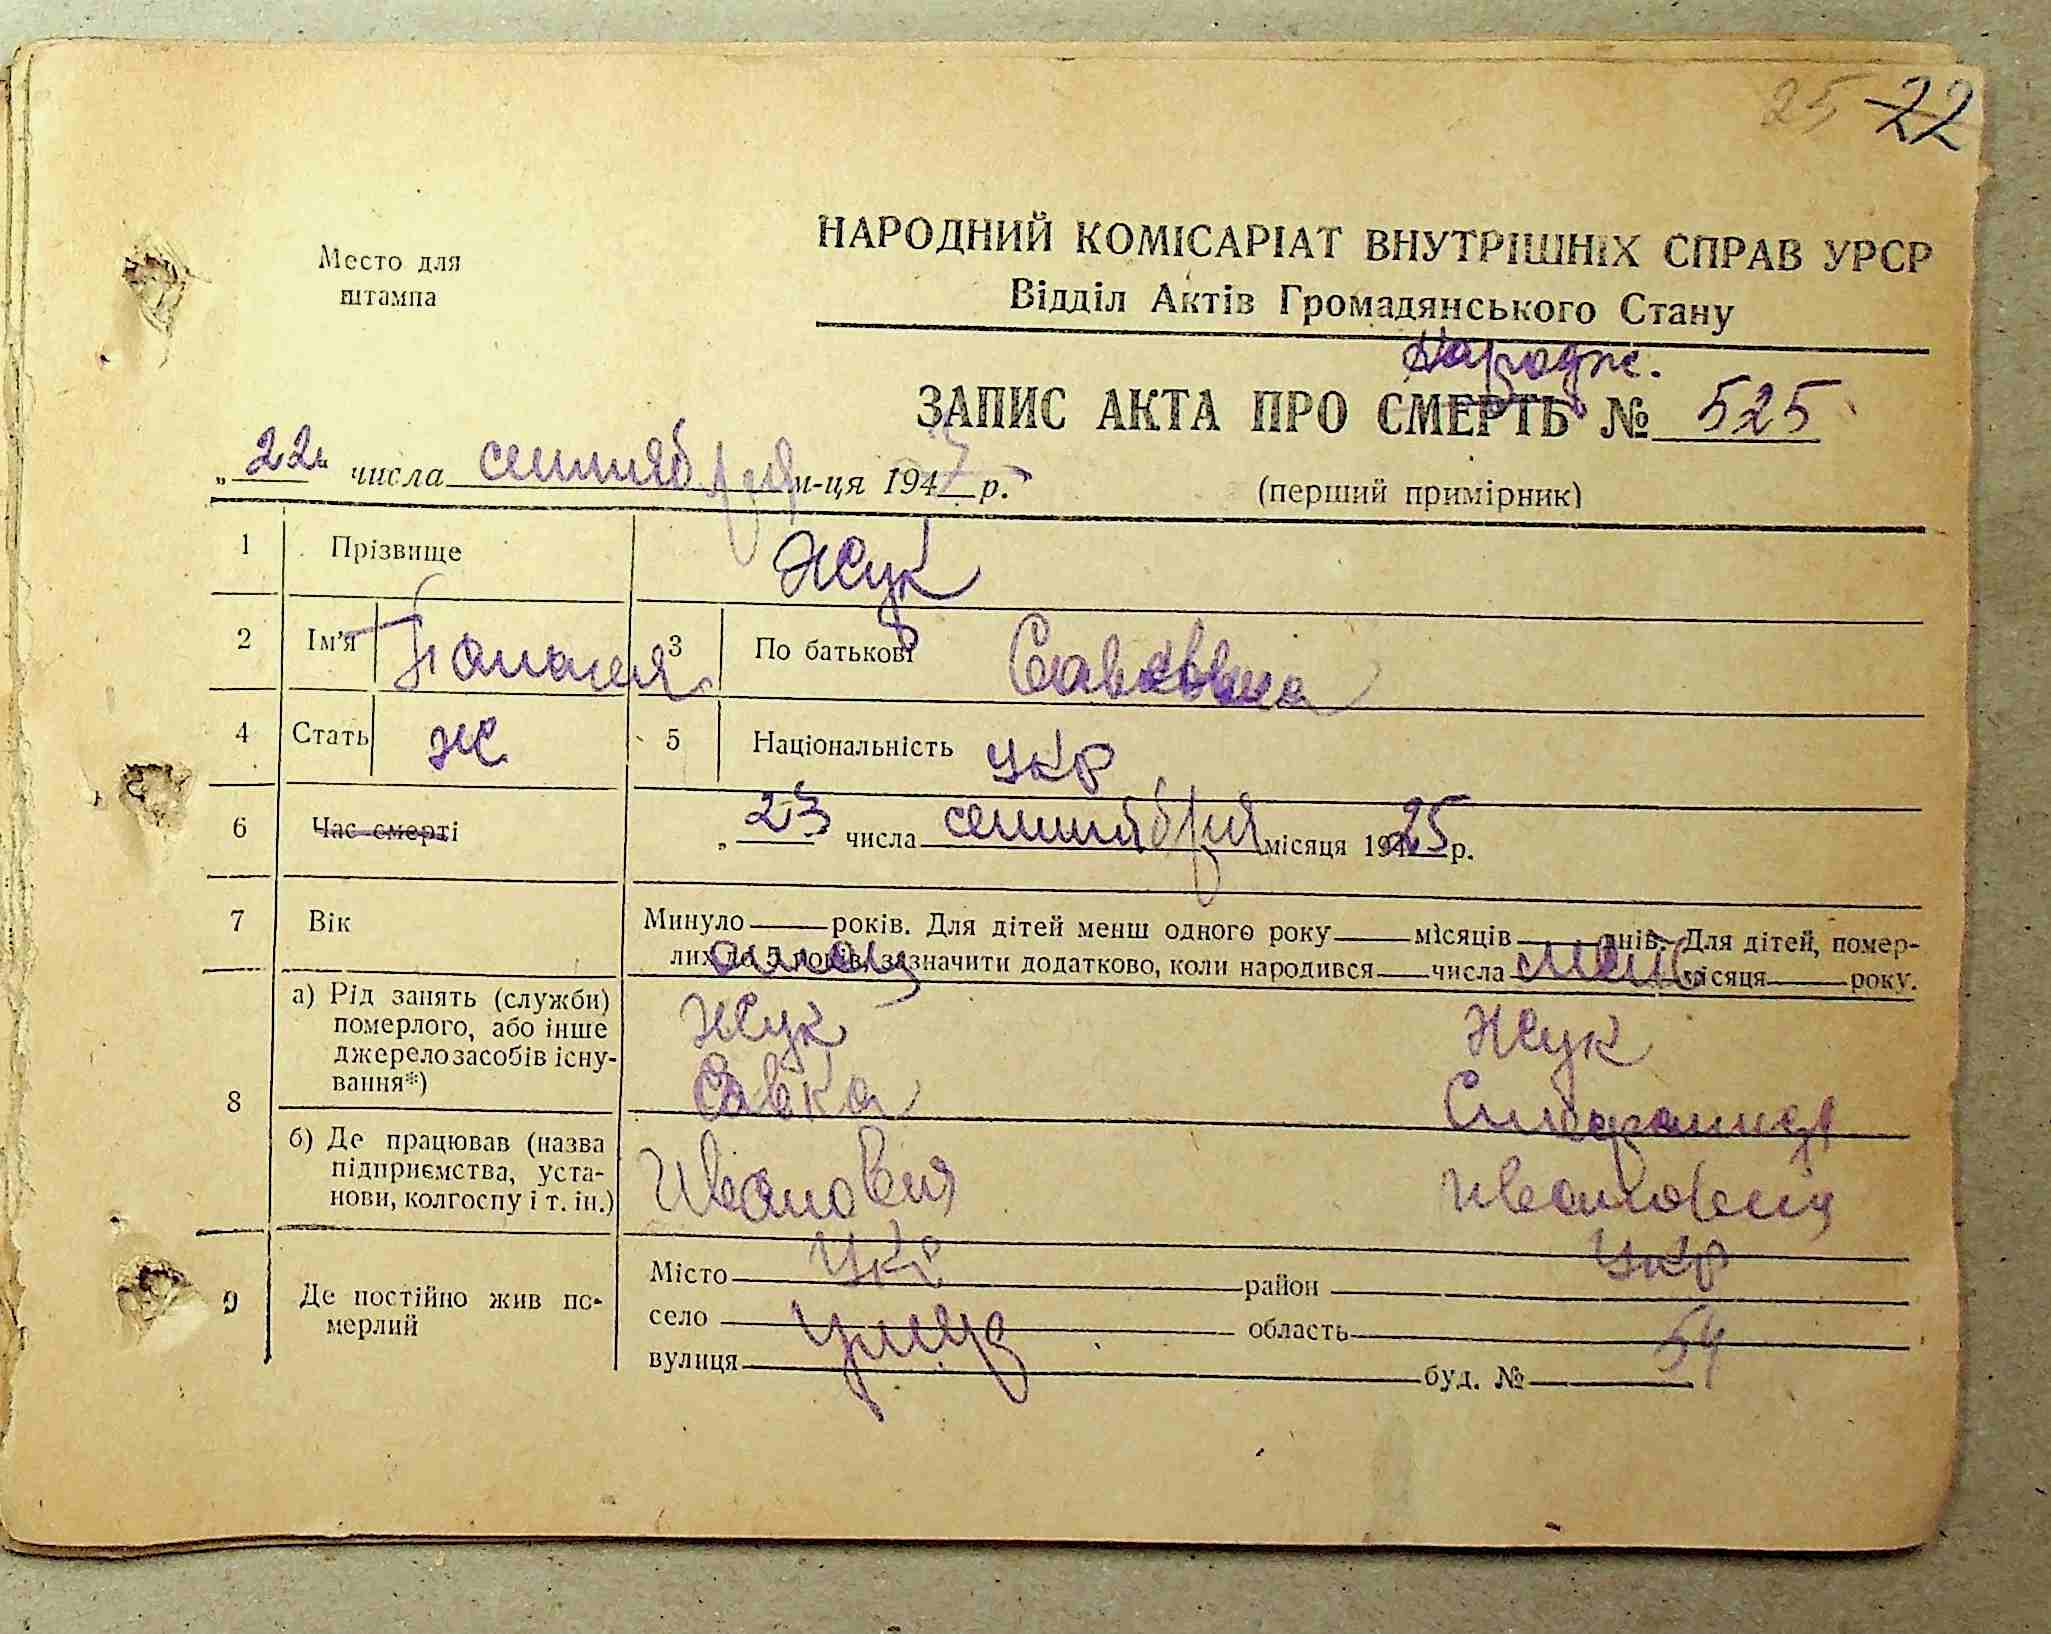 25 22
Место для
штампа
НАРОДНИЙ КОМІСАРІАТ ВНУТРІШНІХ СПРАВ УРСР
Відділ Актів Громадянського Стану
народж.
ЗАПИС АКТА ПРО СМЕРТЬ № 525
„22“ числа сентября м-ця 1947 р.
(перший примірник)
1 Прізвище Жук
2 Ім'я 3 По батькові Савовна
4 Стать ж 5 Національність укр
6 Час смерті „23 числа сентября місяця 1925 р.
7 Вік Минуло — років. Для дітей менш одного року — місяців — днів. Для дітей, помер-
лих до 5 років, зазначити додатково, коли народився — числа — місяця — року.
отец мать
8 а) Рід занять (служби)
померлого, або інше
джерело засобів існу-
вання*)
Жук Жук
Савка
б) Де працював (назва
підприємства, уста-
нови, колгоспу і т. ін.)
Иванович Ивановна
9 Де постійно жив по-
мерлий
Укр Укр
Місто район
село область
вулиця буд. № 54